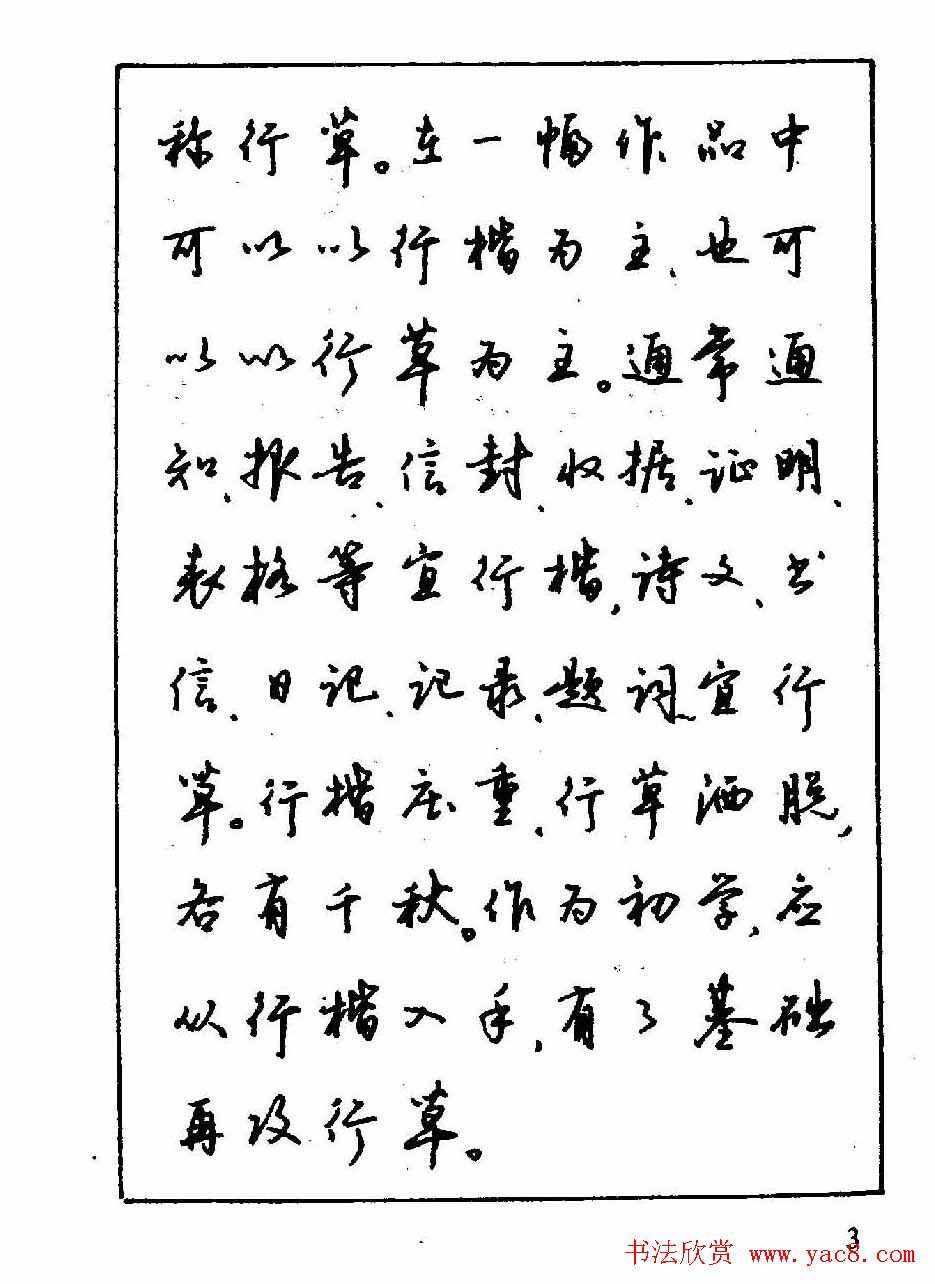 称行草。在一幅作品中
可以以行楷为主、也可
以以行草为主。通常通
知、报告、信封、收据、证明、
表格等宜行楷,诗文、书
信、日记、记录、题词、宜行
草。行楷庄重、行草洒脱,
各有千秋。作为初学,应
从行楷入手,有了基础
再攻行草。
3
书法欣赏 www.yac8.com